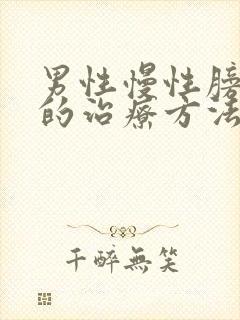 男性慢性膀
的治療方法
千醉無笑